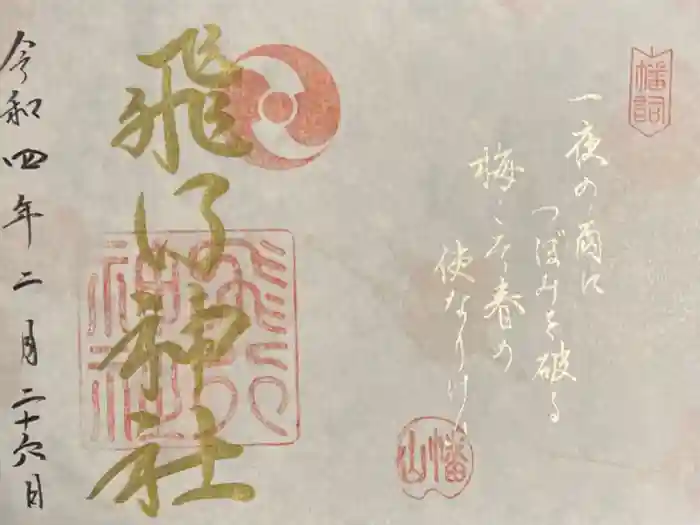 幡詞
一夜の雨に
つぼみを破る
梅こそ春の
使なりけり
幡山
飛行神社
令和四年二月二十六日